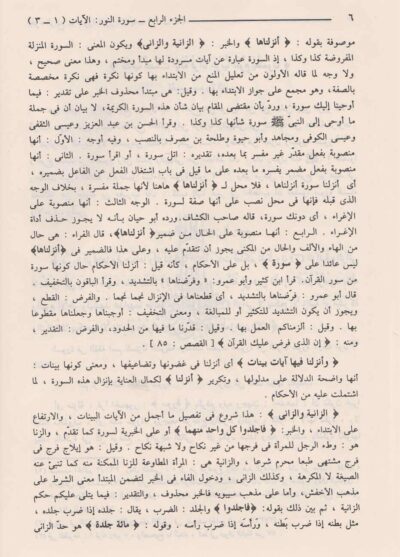 ٦ الجزء الرابع ــ سورة النور: الآيات ( ١ ــ ٣ )
موصوفة بقوله : ﴿ أنزلناها ﴾ والخبر : ﴿ الزانية والزانى ﴾ ويكون المعنى : السورة المنزلة
المفروضة كذا وكذا ، إذ السورة عبارة عن آيات مسرودة لها مبدأ ومختم ، وهذا معنى صحيح ،
ولا وجه لما قاله الأولون من تعليل المنع من الابتداء بها كونها نكرة فهى نكرة مخصصة
بالصفة، وهو مجمع على جواز الابتداء بها . وقيل: هى مبتدأ محذوف الخبر على تقدير : فيما
أوحينا إليك سورة ، وردّ بأن مقتضى المقام بيان شأن هذه السورة الكريمة، لا بيان أن فى جملة
ما أوحى إلى النبىّ ﷺ سورة شأنها كذا وكذا . وقرأ الحسن بن عبد العزيز وعيسى الثقفى
وعيسى الكوفى ومجاهد وأبو حيوة وطلحة بن مصرف بالنصب ، وفيه أوجه : الأوّل : أنها
منصوبة بفعل مقدّر غير مفسر بما بعده، تقديره : اتل سورة ، أو اقرأ سورة . الثانى : أنها
منصوبة بفعل مضمر يفسره ما بعده على ما قيل فى باب اشتغال الفعل عن الفاعل بضميره ،
أى أنزلنا سورة أنزلناها ، فلا محل لـ ﴿ أنزلناها ﴾ هاهنا لأنها جملة مفسرة ، بخلاف الوجه
الذى قبله فإنها فى محل نصب على أنها صفة لسورة . الوجه الثالث : أنها منصوبة على
الإغراء ، أى دونك سورة، قاله صاحب الكشاف.ورده أبو حيان بـأنـه لا يجـوز حـذف أداة
الإغراء . الرابع : أنهـا منصوبة على الحـال مـن ضمير﴿ أنزلناها﴾، قال الفراء : هى حال
من الهاء والألف والحال من المكنى يجوز أن تتقدّم عليه ، وعلى هذا فالضمير فى ﴿أنزلناها﴾
ليس عائدا على ﴿ سورة ﴾ ، بل على الأحكام ، كأنه قيل : أنزلنا الأحكام حال كونها سورة
من سور القرآن. قرأ ابن كثير وأبو عمرو: « وفرّضناها » بالتشديد ، وقرأ الباقون بالتخفيف .
قال أبو عمرو : فرّضناها بالتشديد ، أى قطعناها فى الإنزال نجما نجما . والفرض : القطع ،
ويجوز أن يكون التشديد للتكثير أو للمبالغة ، ومعنى التخفيف : أوجبناها وجعلناها مقطوعا
بها . وقيل : ألزمناكم العمل بها ، وقيل : قدّرنا ما فيها من الحدود، والفرض: التقدير ،
ومنه : ﴿ إن الذى فرض عليك القرآن ﴾ [ القصص : ٨٥ ] .
﴿ وأنزلنا فيها آيات بينات ﴾ أى أنزلنا فى غضونها وتضاعيفها ، ومعنى كونها بينات :
أنها واضحة الدلالة على مدلولها ، وتكرير ﴿ أنزلنا ﴾ لكمال العناية بإنزال هذه السورة ، لما
اشتملت عليه من الأحكام .
﴿ الزانية والزانى ﴾ : هذا شروع فى تفصيل ما أجمل من الآيات البينات ، والارتفاع
على الابتداء ، والخبر: ﴿ فاجلدوا كل واحد منهما ﴾ أو على الخبرية لسورة كما تقدّم ، والزنا
هو : وطء الرجل للمرأة فى فرجها من غير نكاح ولا شبهة نكاح . وقيل : هو إيلاج فرج فى
فرج مشتهى طبعا محرم شرعا ، والزانية هى : المرأة المطاوعة للزنا الممكنة منه كما تنبئ عنه
الصيغة لا المكرهة ، وكذلك الزانى ، ودخول الفاء فى الخبر لتضمن المبتدأ معنى الشرط على
مذهب الأخفش، وأما على مذهب سيبويه فالخبر محذوف ، والتقدير : فيما يتلى عليكم حكم
الزانية ، ثم بين ذلك بقوله: ﴿فاجلدوا ﴾ والجلد : الضرب ، يقال : جلده إذا ضرب جلده ،
مثل بطنه إذا ضرب بطنه ، ورأسه إذا ضرب رأسه . وقوله : ﴿ مائة جلدة ﴾ هو حدّ الزانى